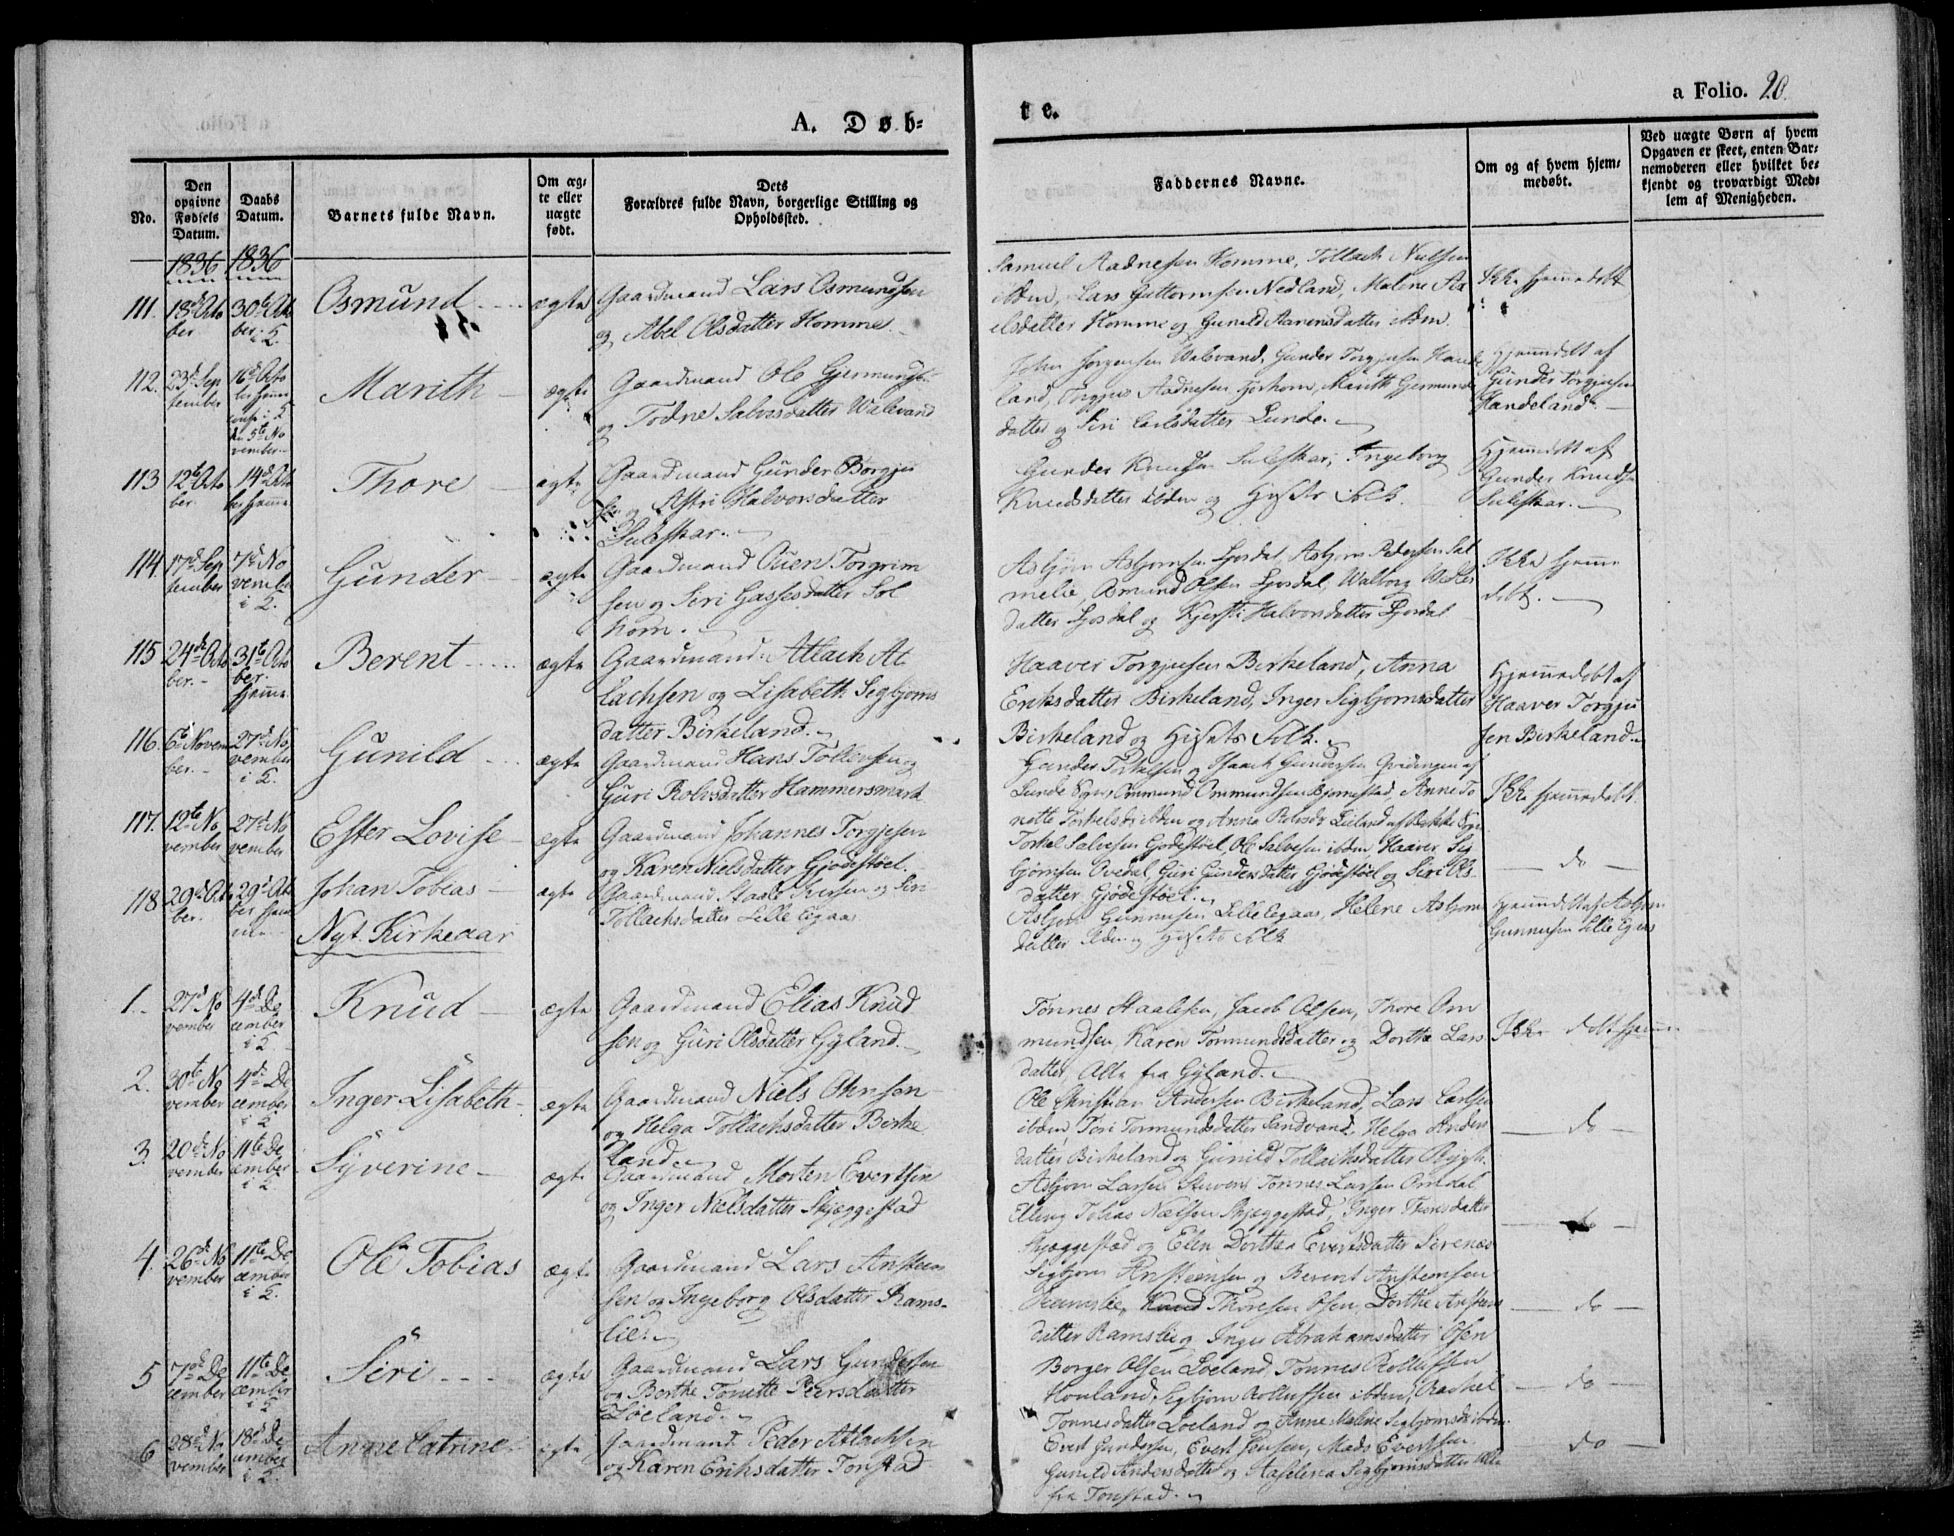 A. Døb-
te.
a Folio. 20.
No.
Den opgivne Fødsels Datum.
Daabs Datum.
Barnets fulde Navn.
Om ægte eller uægte født.
Dets Forældres fulde Navn, borgerlige Stilling og Opholdssted.
Faddernes Navne.
Om og af hvem hjemmedøbt.
Ved uægte Børn af hvem Opgaven er skeet, enten Barnemoderen eller hvilket bekjendt og troværdigt Medlem af Menigheden.
1836 1836
111. 18de Octo
ber
30te Octo
ber i K.
Osmund
ægte
Gaardmand Lars Osmundsen
og Abel Olsdatter Homme
Samuel Aadnesen Homme, Tollach Nielsen
ibdm, Lars Guttormsen Nedland, Malene
elsdatter Homme og Gunild Aanensdatter ibdm
Ikke hjemmedøbt
112. 23de Sep
tember
16de Octo
ber hjemme
i K
den 5te No
vember
Marith
ægte
Gaardmand Ole Gjermundsen
og Todne Salvesdatter Walevand
John Jorgensen Walevand, Gunder Torgjusen Hande
land, Torgjus Aadnesen, Marith Gjermunds
datter og Siri Carlsdatter Lunde.
Hjemmedøbt af
Gunder Torgjusen
Handeland.
113 12te Octo
ber.
14de Octo
ber hjemme
Thore
ægte
Gaardmand Gunder Borgju
sen og Astri Halvorsdatter
Suleskar.
Gunder Knudsen Suleskar, Ingeborg
Knudsdatter ibdm og Husets Folk.
Hjemmedøbt af
Gunder Knudsen
Suleskar.
114. 17de Sep
tember
7de No
vember
i K.
Gunder
ægte
Gaardmand Ouen Torgrim
sen og Siri Gassesdatter Sol
horn.
Asbjørn Asbjørnsen Ljosdal, Asbjørn Pedersen Sal
melie, Osmund Olsen Ljosdal, Walborg
datter Ljosdal og Kjersti Halvorsdatter Ljosdal
Ikke hjemme
døbt.
115 24de Octo
ber.
31te Octo
ber.
hjemme
Berent
ægte
Gaardmand Atlach At
lachsen og Lisabeth Segbjørns
datter Birkeland.
Haaver Torgjusen Birkeland, Anna
Eriksdatter Birkeland, Inger Sigbjørnsdatter
Birkeland og Husets Folk.
Hjemmedøbt af
Haaver Torgju
sen Birkeland.
116. 6te Novem
ber.
27de No
vember
i K.
Gunild
ægte
Gaardmand Hans Tollevsen og
Guri Rolvsdatter Hammersmark
Gunder Torkelsen og Isaach Gundersen Qvidingen af
Lunde Sogn, Ommund Ommundsen Bjørnestad, Anne To
nette Torkelsdtr ibdm og Anna Rolvsdr Lieland af Bakke Sogn
Ikke hjemmedøbt
117. 12te No
vember
27de No
vember
Ester Lovise
ægte
Gaardmand Johannes Torgjesen
og Karen Nielsdatter Gjødestøel.
Torkel Salvesen Gjødestøel, Ole Salvesen ibdm, Haaver Sig
bjørnsen Ovedal, Guri Gundersdatter Gjødestøel og Siri Ols
datter Gjødestøel.
do
118 29de Octo
ber.
29de Octo
ber hjem
me
Johan Tobias
ægte
Gaardmand Staale Iversen og Siri
Tollachsdatter Lille Egaas.
Asbjørn Gunnusen Lille Egaas, Helene Asbjørns
datter ibdm og Husets Folk
Hjemmedøbt af Asbjørn
Gunnusen Lille Egaas
Nyt Kirkeaar
1. 27de No
vember
4de De
cember
i K.
Knud
ægte
Gaardmand Elias Knud
sen og Guri Olsdatter Gyland.
Tønnes Staalesen, Jacob Olsen, Thore Om
mundsen, Karen Tormundsdatter og Dorthe Lars
datter Alle fra Gyland.
Ikke døbt hjemme
2. 30te No
vember
4de De
cember
i K.
Inger Lisabeth
ægte
Gaardmand Niels Ohnsen
og Helga Tollachsdatter Birke
land.
Ole Christian Andersen Birkeland, Lars Carlsen
ibdm, Tori Tormundsdatter Sandvand, Helga Anders
datter Birkeland og Gunild Tollachsdatter
do
3. 20de No
vember
11te De
cember
i K
Syverine
ægte
Gaardmand Morten Evertsen
og Inger Nielsdatter Skjæggestad
Asbjørn Larsen, Tønnes Larsen Omdal,
Elling Tobias Nielsen Skjeggestad, Inger Thoresdatter
Skjæggestad og Elen Dorthea Evertsdatter Sirenæs
do
4. 26de No
vember
11te De
cember
i K.
Ole Tobias
ægte
Gaardmand Lars Ansteen
sen og Ingeborg Olsdatter Rams-
lie.
Sigbjørn Ansteensen og Berent Ansteensen
Ramslie, Knud Thoresen Osen, Dorthe Ansteens
datter Ramslie og Inger Abrahamsdatter Osen
do
5 7de De
cember
11te De
cember
i K
Siri
ægte
Gaardmand Lars Gundersen
og Berthe Tonette Peersdatter
Løeland.
Borger Olsen Loeland, Tønnes Rollufsen
Houland, Segbjørn Rollufsen ibdm, Rachel
Tønnesdatter Loeland og Anne Malene Segbjørnsdr ibdm.
do
6 28de No
vember
18de De
cember
i K
Anne Catrine
ægte
Gaardmand Peder Atlachsen
og Karen Eriksdatter Tonstad
Evert Gundersen, Evert Jensen, Mads Evertsen
Gunild Andersdatter og Aaselena Sigbjørnsdatter Alle
fra Tonstad.
do